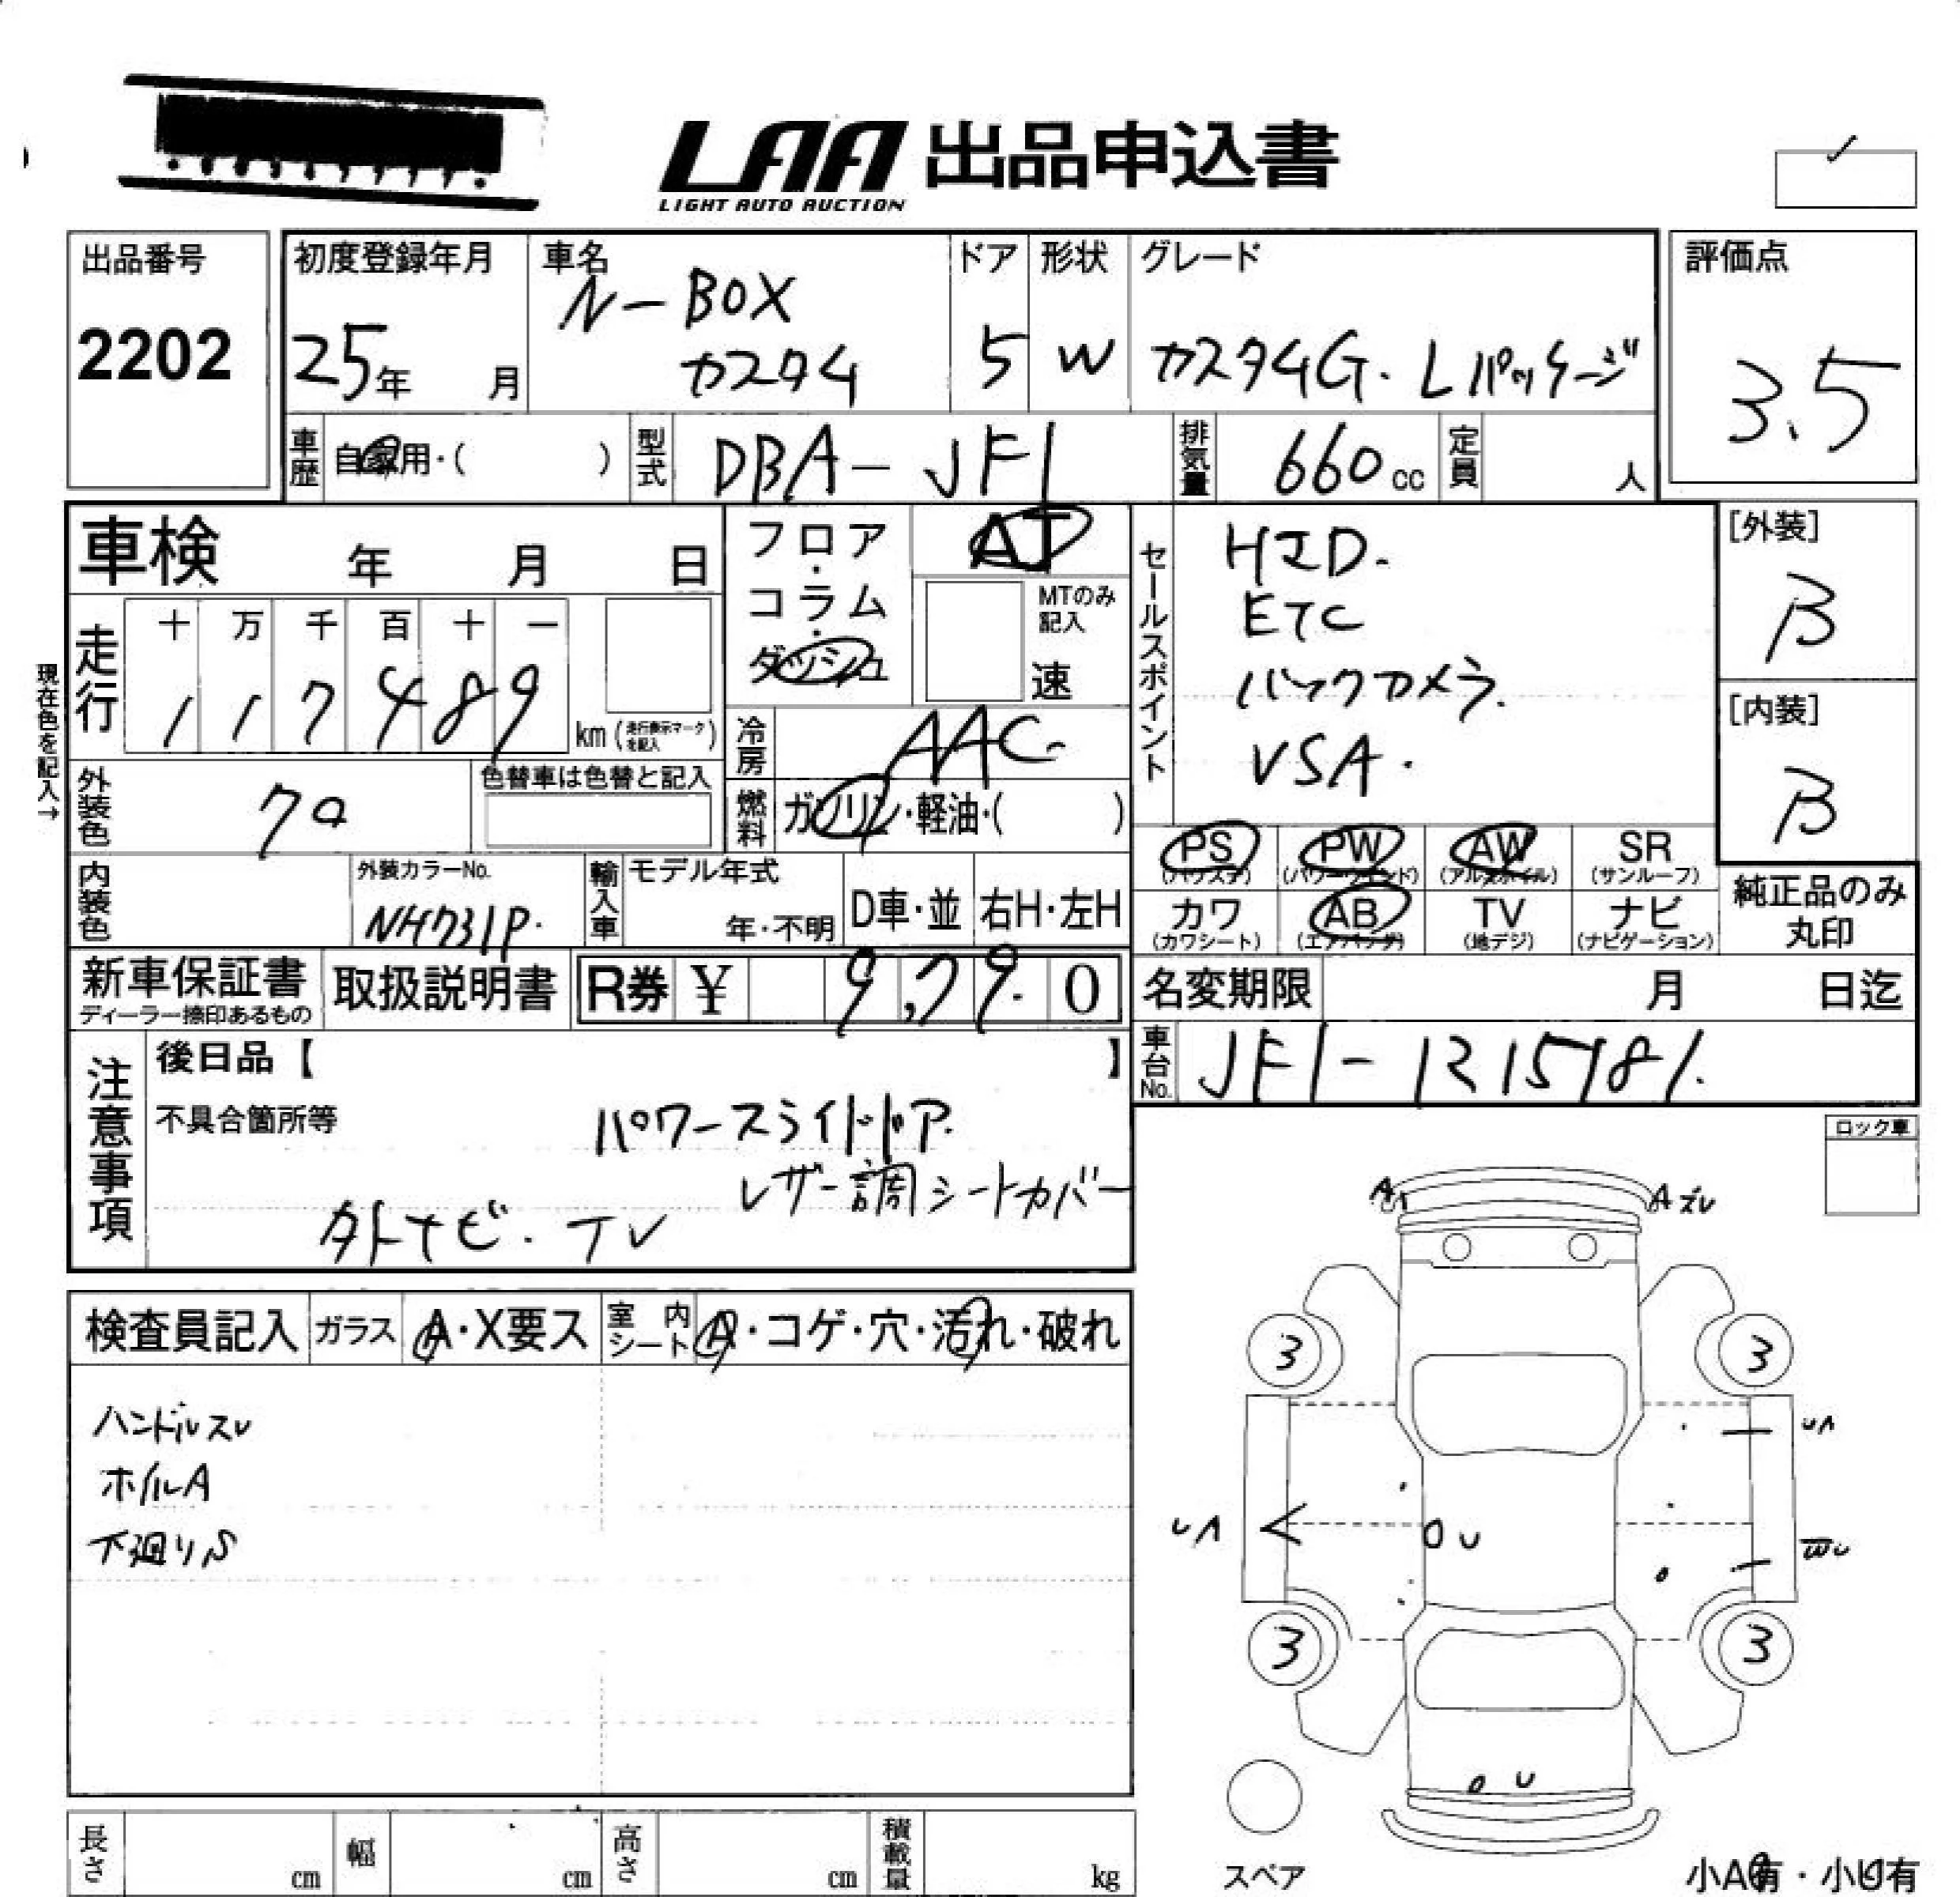 LAA 出品申込書
LIGHT AUTO AUCTION
出品番号
2202
初度登録年月
25年 月
車名
N-BOX
カスタム
ドア
5
形状
W
グレード
カスタムG・Lパッケージ
評価点
3.5
車歴 自家用・( )
型式 DBA-JF1
排気量 660cc
定員 人
車検 年 月 日
フロア・コラム・ダッシュ
AT
MTのみ記入
速
セールスポイント
HID.
ETC
バックカメラ.
VSA.
[外装]
B
[内装]
B
現在色を記入→
走行
十 万 千 百 十 一
1 1 7 4 8 9
km (走行表示マークを記入)
冷房 AAC
燃料 ガソリン・軽油・( )
外装色 クロ
色替車は色替と記入
PS (パワステ) PW (パワーウインド) AW (アルミホイル) SR (サンルーフ)
カワ (カワシート) AB (エアバッグ) TV (地デジ) ナビ (ナビゲーション)
純正品のみ丸印
内装色
外装カラーNo.
NH731P.
輸入車
モデル年式
年・不明
D車・並
右H・左H
新車保証書
ディーラー捺印あるもの
取扱説明書
R券 ¥ 9,79.0
名変期限 月 日迄
車台No. JF1-1215781.
注意事項
後日品【 】
不具合箇所等
パワースライドドア.
レザー調シートカバー
外ナビ. TV
ロック車
A A ズレ
3 3
UA
UA U WU
3 3
U
スペア
小A有・小U有
検査員記入 ガラス A・X要ス 室内シート A・コゲ・穴・汚れ・破れ
ハンドルスレ
ホイルA
下廻りS
長さ cm
幅 cm
高さ cm
積載量 kg